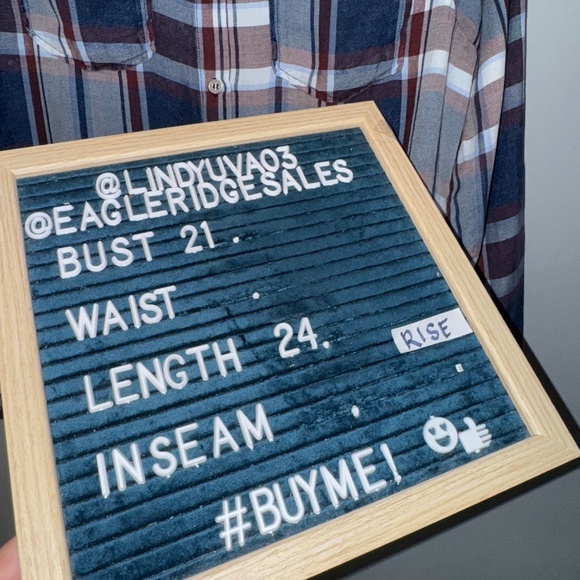 @LINDYUVA03
@EAGLERIDGESALES
BUST 21.
WAIST .
LENGTH 24.
RISE
INSEAM .
#BUYME!